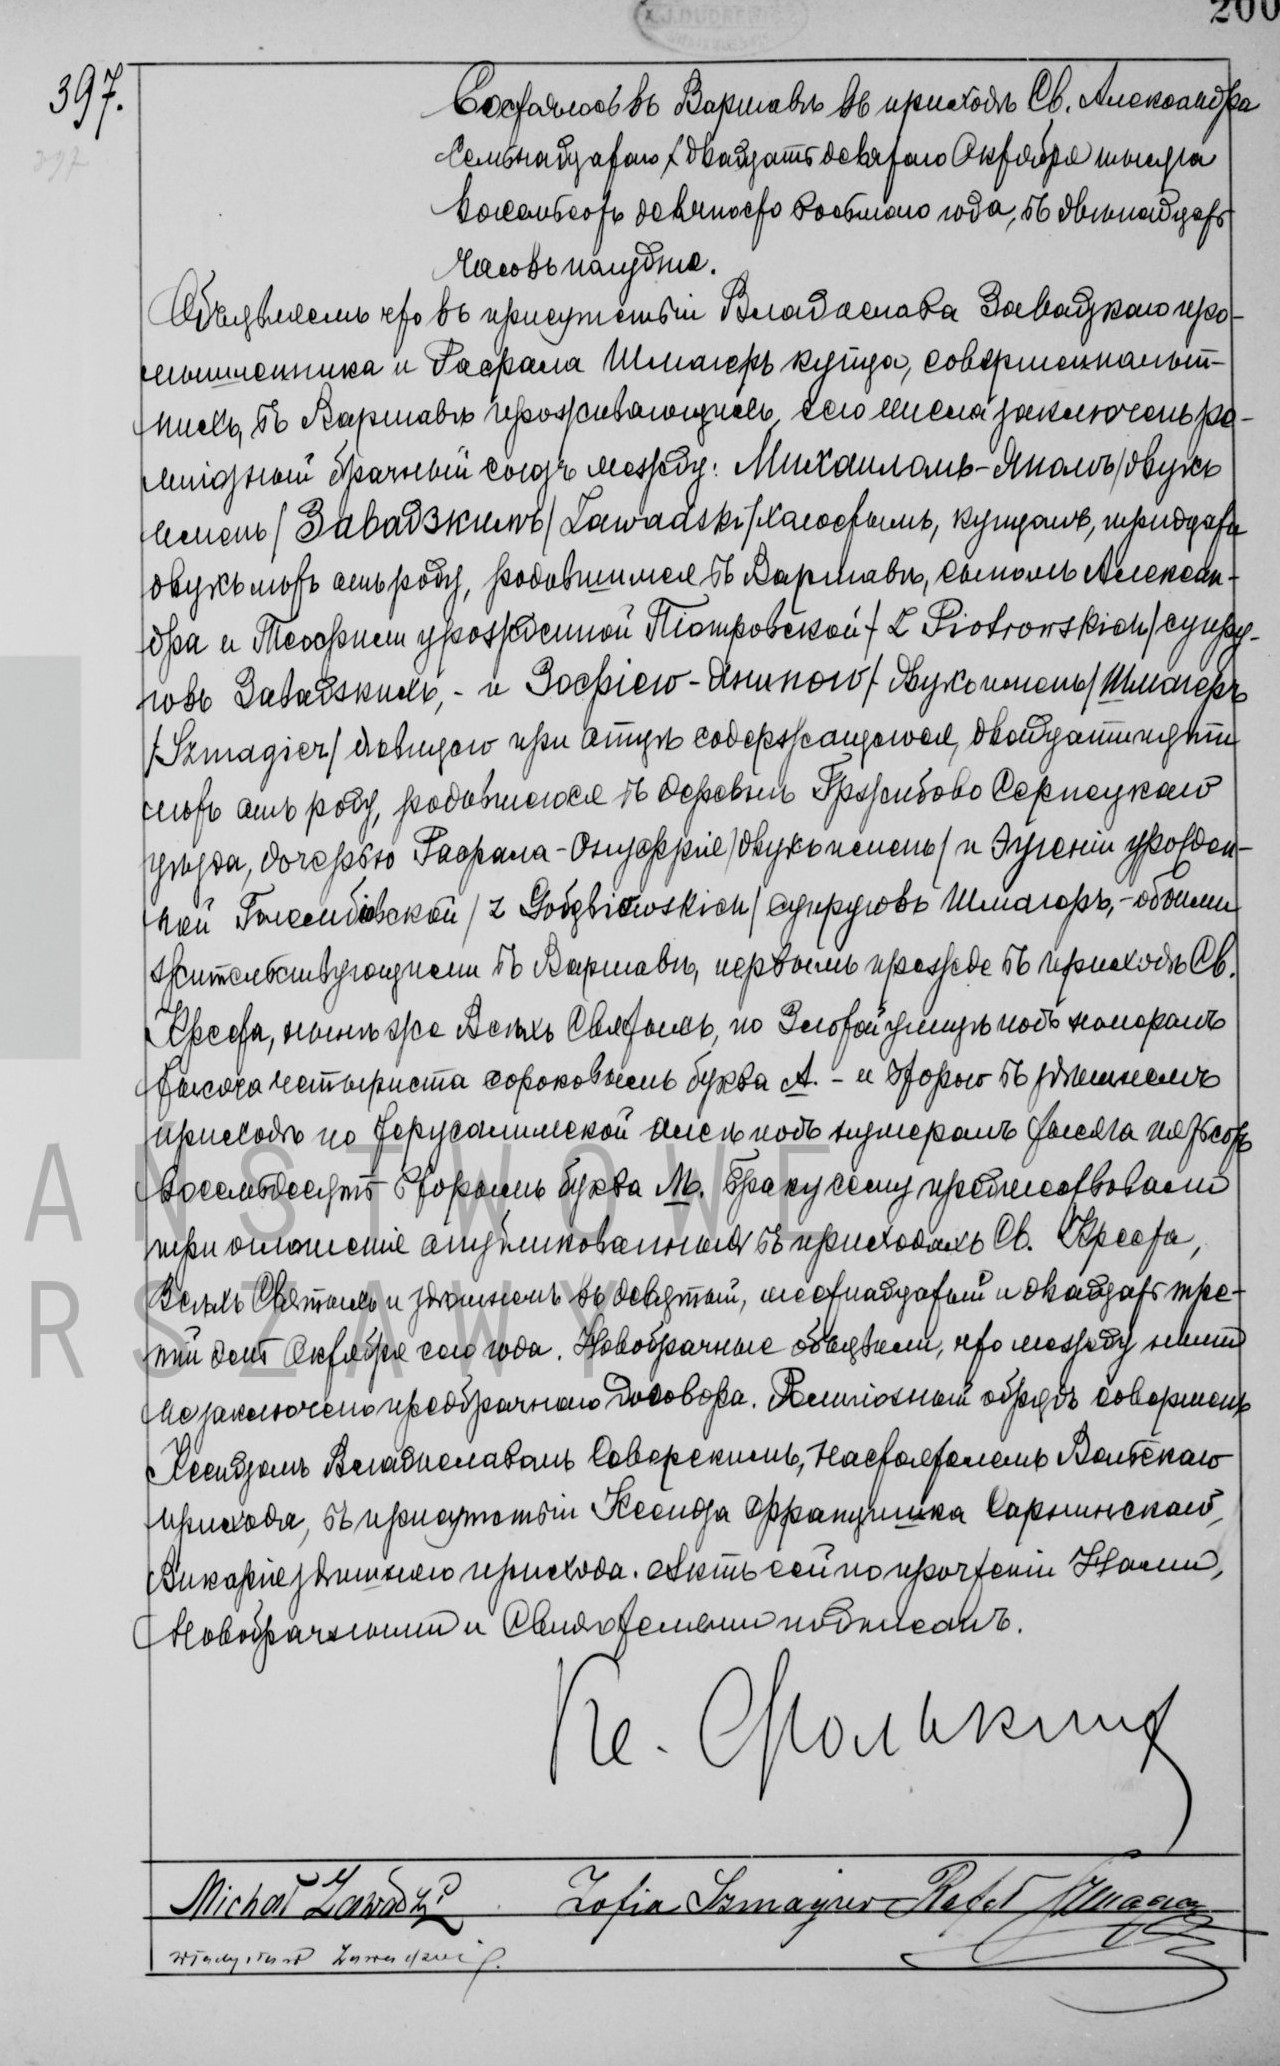 200
397.
397
Состоялось въ Варшавѣ въ приходѣ Св. Александра
семьнадцатаго / двадцать девятаго Октября тысяча
восемьсотъ девяносто восьмого года, въ двѣнадцать
часовъ полудня.
Объявляемъ что въ присутствіи Владислава Завадзкаго про-
мышленника и Рафала Шмагеръ купца, совершеннолѣт-
нихъ, въ Варшавѣ проживающихъ, сего числа заключенъ ре-
лигіозный брачный союзъ между: Михаиломъ-Яномъ / двухъ
именъ / Завадзкимъ / Zawadzki / холостымъ, купцомъ, тридцати
двухъ лѣтъ отъ роду, родившимся въ Варшавѣ, сыномъ Алексан-
дра и Теофили урожденной Піотровской / z Piotrowskich / супру-
говъ Завадзкихъ, - и Зофіею-Яниною / двухъ именъ / Шмагеръ
/ Szmagier / дѣвицею при отцѣ содержащеюся, двадцати пяти
лѣтъ отъ роду, родившеюся въ деревнѣ Гржибово Серпецкаго
уѣзда, дочерью Рафала-Онуфрія / двухъ именъ / и Эугеніи урожден-
ной Голембіовской / z Gołębiowskich / супруговъ Шмагеръ, - обоими
жительствующими въ Варшавѣ, первымъ прежде въ приходѣ Св.
Креста, нынѣ же Всѣхъ Святыхъ, по Злотой улицѣ подъ номеромъ
тысяча четыриста сороковымъ буква А. - и второю въ здѣшнемъ
приходѣ по Іерусалимской алеи подъ нумеромъ тысяча пятьсотъ
восемьдесятъ вторымъ буква М. Браку сему предшествовали
три оглашенія опубликованныя въ приходахъ Св. Креста,
Всѣхъ Святыхъ и здѣшнемъ въ девятый, шестнадцатый и двадцать тре-
тій дни Октября сего года. Новобрачные объявили, что между ними
не заключено предбрачнаго договора. Религіозный обрядъ совершенъ
Ксендзомъ Владиславомъ Северскимъ, настоятелемъ Вольскаго
прихода, въ присутствіи Ксендза Францишка Сарнинскаго,
Викарія здѣшняго прихода. Актъ сей по прочтеніи Нами,
Новобрачными и Свидѣтелями подписанъ.
Кс.
Michał Zawadzki Zofia Szmagier Rafał Szmagier
Władysław Zawadzki
ANSTWOWE
RSZAWY